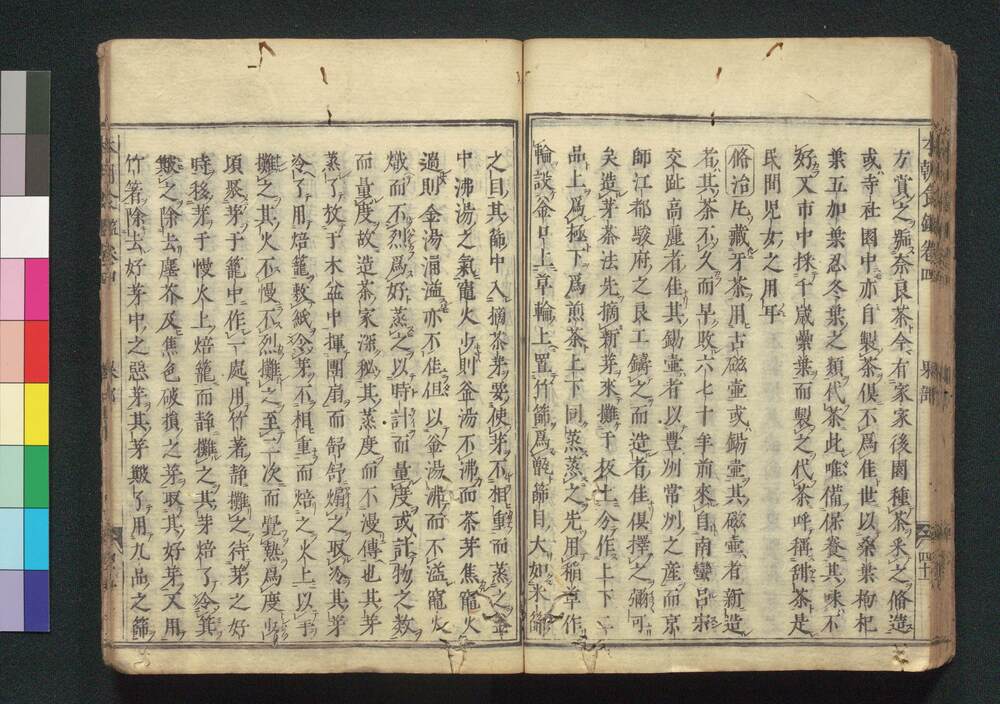 本朝食鑑卷四 果部 四十
方賞之號奈良茶今有家家後園種茶采之脩造
或寺社園中亦自製茶俱不爲佳世以桑葉枸杞
葉五加葉忍冬葉之類代茶此唯備保養其味不
好又市中採千歳虆葉而製之代茶呼稱甜茶是
民間児女之用耳
脩治凡藏芽茶用古磁壷或錫壷其磁壷者新造
者其茶不久而早敗六七十年前來自南蠻呂宋
交趾高麗者佳其錫壷者以豊州常州之産而京
師江都駿府之良工鑄之而造者佳俱擇之彌可
矣造芽茶法先摘新芽來攤于板上分作上下二
品上爲極下爲煎茶上下同蒸蒸之先用稲草作
輪設釜口上草輪上置竹篩爲甑篩目大如米篩
之目其篩中入摘茶芽要使芽不相重而蒸之釜
中沸湯之氣竈火少則釜湯不沸而茶芽焦竈火
過則釜湯涌溢亦不佳但以釜湯沸而不溢竈火
熾而不烈爲好蒸之以時計而量度或計物之数
而量度故造茶家深秘其蒸度而不漫傳也其芽
蒸了放于木盆中揮團扇而舒舒煽之取冷其芽
冷了用焙籠敷紙令芽不相重而焙之火上以手
攤之其火不慢不烈攤之至一次而覺熱爲度少
頃聚芽于籠中作一處用竹著静攤之待芽之好
時移芽于慢火上焙籠而静攤之其芽焙了令箕
簸之除去塵芥及焦色破損之芽取其好芽又用
竹著除去好芽中之惡芽其芽皺了用九品之篩